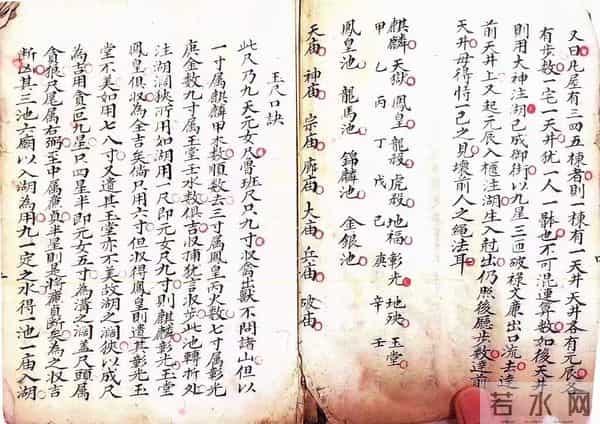 又曰凡屋有三四五棟者則一棟有一天井天井各有元辰各
有步数一宅一天井犹一人一体也不可混连算数如後天井
則用大神注湖已成御街以九星三匝破禄文廉出口流去達
前天井上又起元辰入柜注湖生入尅出仍照後廳步数達前
天井毋得恃一己之見壞前人之绳法耳
麒麟 天獄 鳳皇 龍殺 虎殺 地福 彰光 地殃 玉堂
甲 乙 丙 丁 戊 己 庚 辛 壬
鳳皇池 龍馬池 錦麟池 金銀池
天庙 神庙 宗庙 廊庙 大庙 兵庙 破庙
玉尺口訣
此尺乃九天元女八魯班尺只九寸收龠出獸不問諸山但以
一寸属麒麟甲木数順数去三寸属鳳皇丙火数七寸属彰光
庚金数九寸属玉堂壬水数俱吉收捕犹言収步此池轉折处
注湖濶狹所用如湖用一尺即元女尺九寸則麒麟彰光玉堂
鳳皇俱收為全吉矣倘只用六寸但収得鳳皇則遗其彰光玉
堂不美如用七八寸又遗其玉堂亦不美故湖之濶狹以成尺
為吉用貪巨九星只四星半即元女五寸為溝之濶盖尺頭属
貪狼尺尾属右弼至中属廉貞半星則是將廉貞断矣為之収吉
断凶其三池六廟以入湖為用九一定之水得一池一庙入湖
若水网